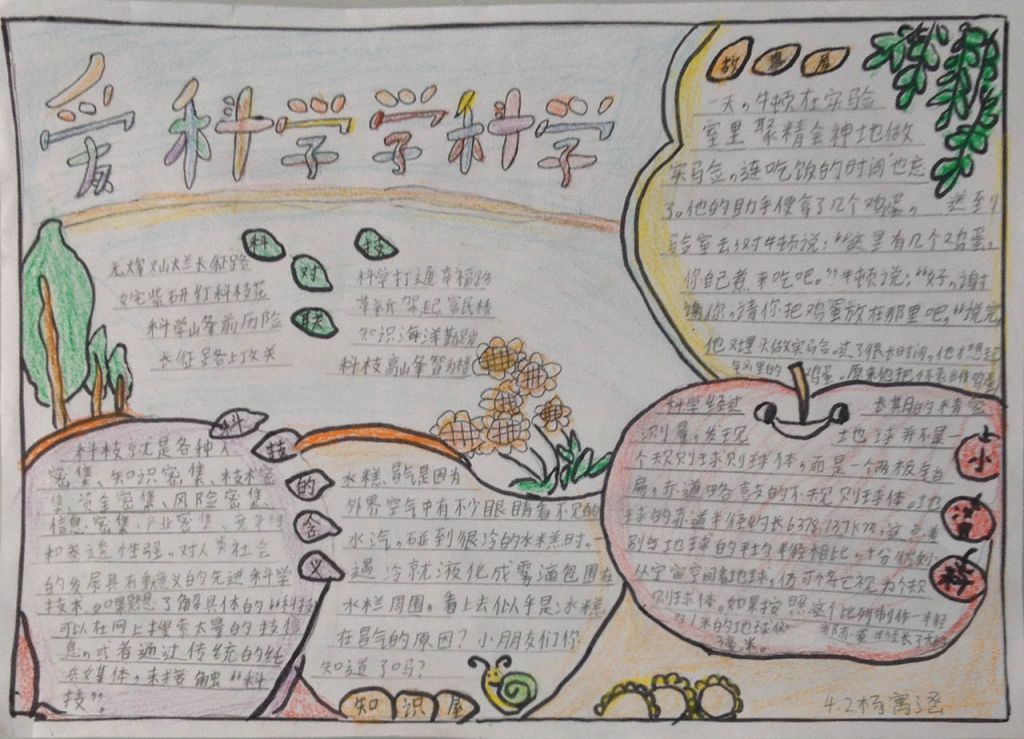 爱科学学科学
故事屋
一天，牛顿在实验
室里聚精会神地做
实马佥，连吃饭的时间也忘
了。他的助手便拿了几个鸡蛋，送到
验室去，对牛顿说：“这里有几个鸡蛋，
你自己煮来吃吧。”牛顿说：“好，谢
谢你，请你把鸡蛋放在那里吧。”说完
他又埋头做实马佥，过了很长时间，他才想起
科技
对
联
光辉灿烂长征路
姹紫研红科技花
科学山峰前历险
长征路上攻关
科学打通幸福路
革新驾起富民桥
知识海洋勤
科技高山智为
科技的含义
科技就是各种人
密集、知识密集、技术密
集、资金密集、风险密集、
信息密集、产业密集、竞争性
和渗透性强，对人类社会
的发展具有重意义的先进科学
技术，如果想了解具体的“科技
可以在网上搜索大量的技信
息，或者通过传统的纸
质媒体，来接触“科
技”。
水糕冒气是因为
外界空气中有不少眼睛看不见的
水汽，碰到很冷的水糕时，一
遇冷就液化成雾滴包围在
水栏周围，看上去似乎是冰糕
在冒气的原因？小朋友们你
知道了吗？
知识屋
科学经过长期的精密
测量，发现地球并不是一
个规则球则球体，而是一个两极
扁，赤道略鼓的不规则球体。地
球的赤道半径约长6378.137km，这点差
别与地球的平均半径相比，十分微
从宇宙空间看地球，仍可将它视为个规
则球体。如果按照这个比例制作一半径
为1米的地球仪
小
科
4.2杨寓涵